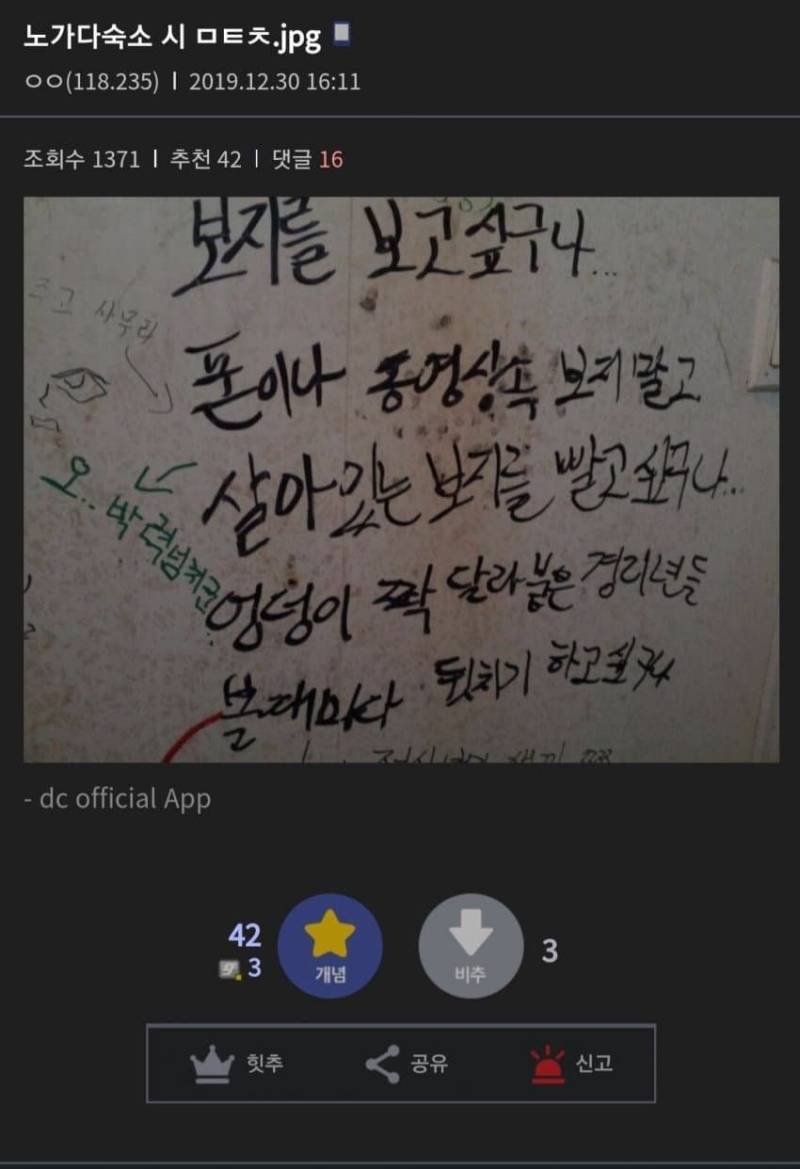 노가다숙소 시 ㅁㅌㅊ.jpg
ㅇㅇ(118.235) | 2019.12.30 16:11
조회수 1371 | 추천 42 | 댓글 16
보지를 보고싶구나...
폰이나 동영상속 보지말고
살아있는 보지를 빨고싶구나...
엉덩이 짝 달라붙은 경리년들
볼때마다 뒷치기 하고싶구나
오.. 박력넘쳐군..
- dc official App
42
3
개념
비추
3
힛추
공유
신고